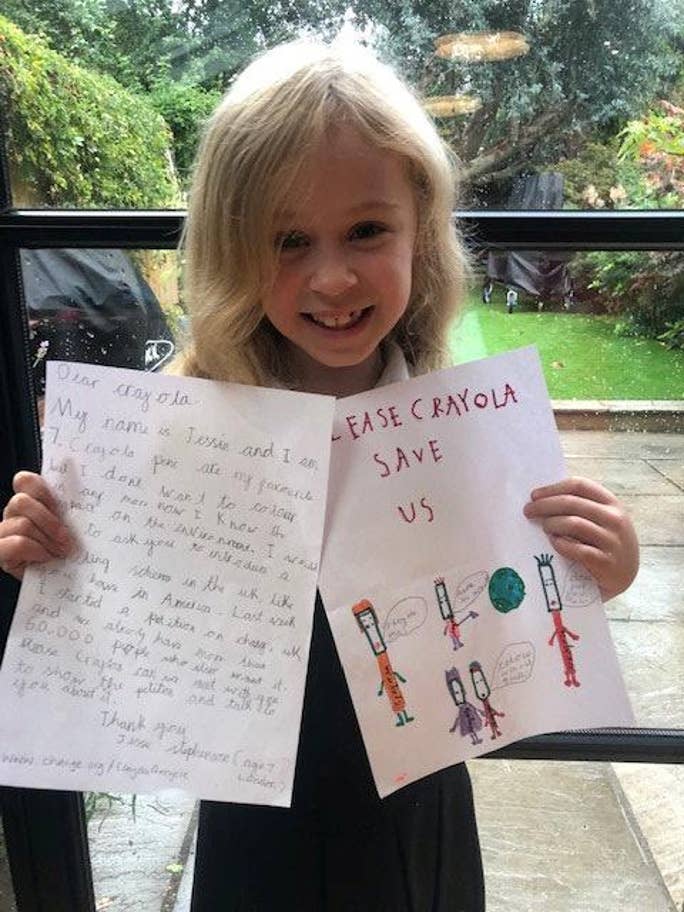 Dear crayola.
My name is Jessie and I am
7. Crayola pens are my favourite
but I dont want to colour
in any more now I know the
on the environment. I would
to ask you to introduce a
scheme in the uk like
you have in America. Last week
I started a petition on change, uk
and we already have more than
60,000 people who also want it.
Please Crayola can we meet with you
to show the petition and talk to
you about it.
Thank you
Jessie Stephenson (age 7
London)
www.change.org/CrayolaRecycle
LEASE CRAYOLA
SAVE
US